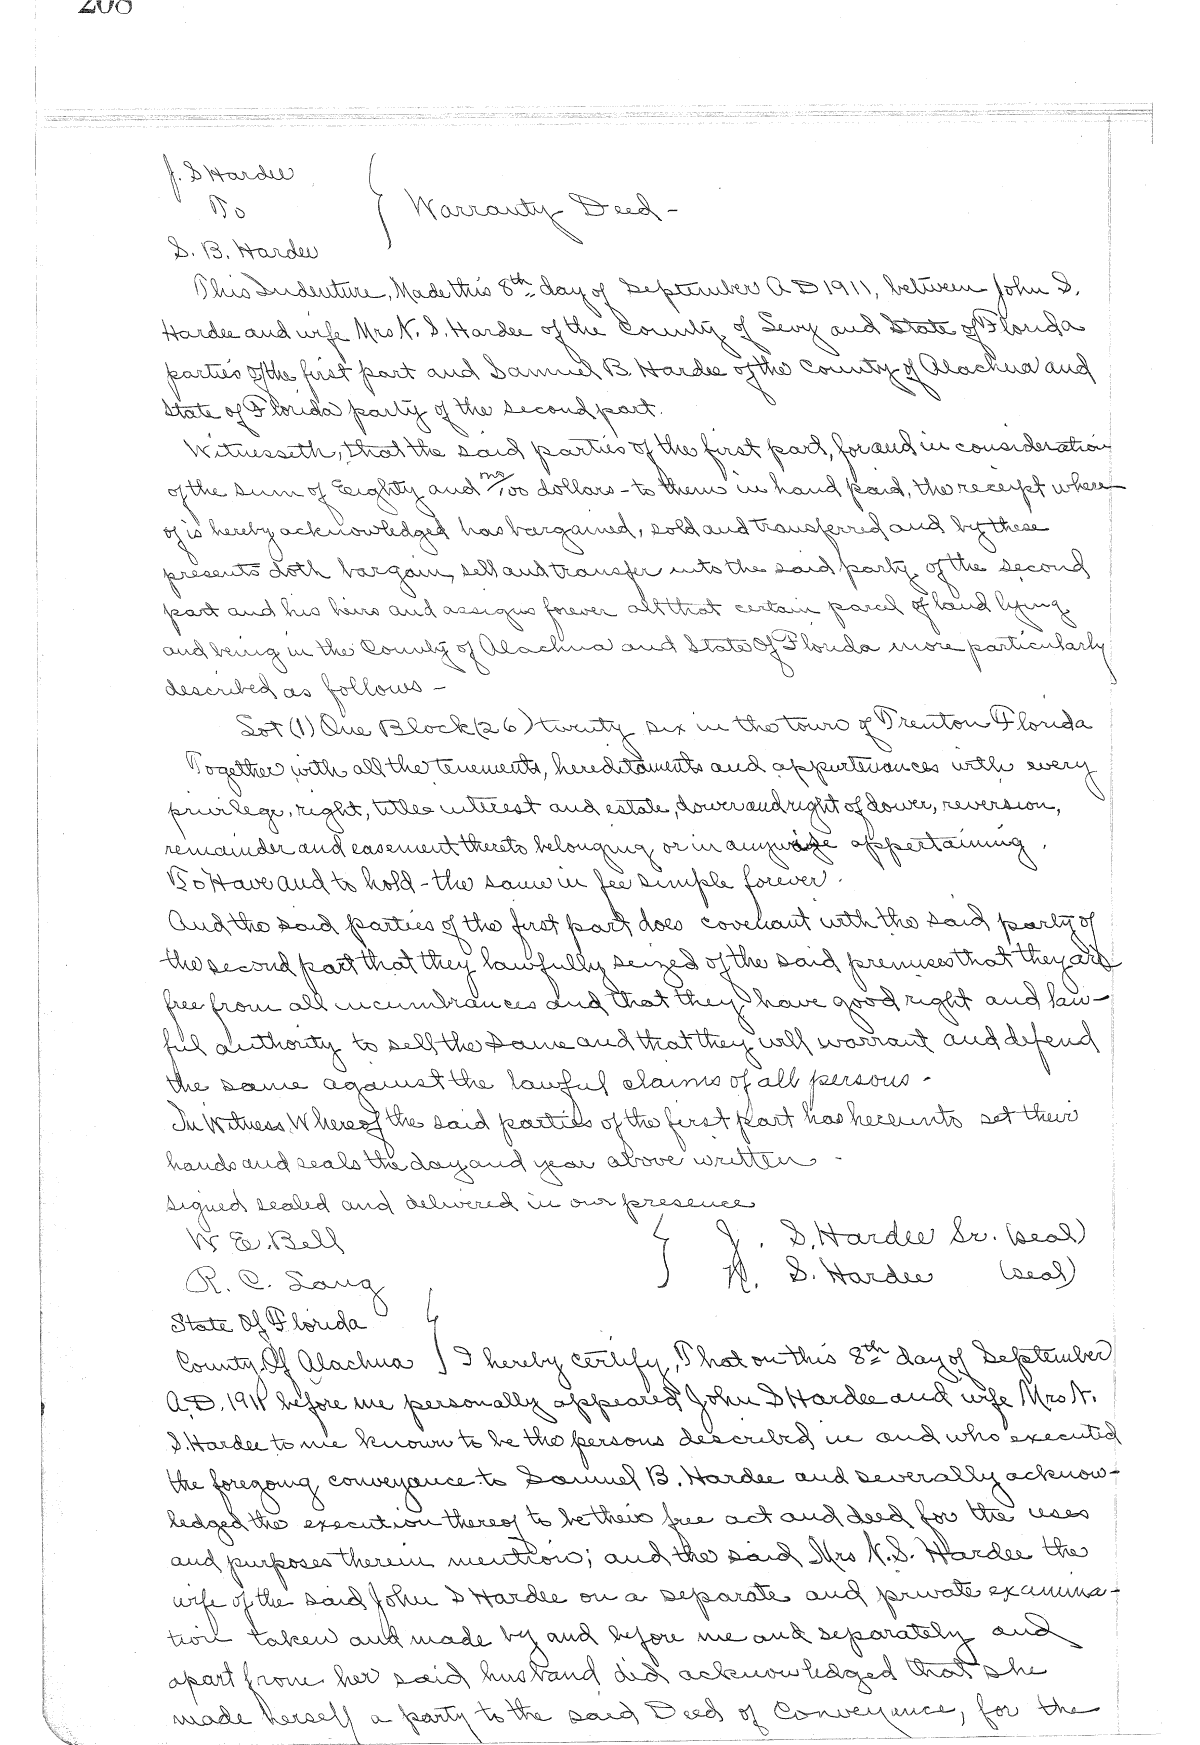 208
J. S Hardee
To
Warranty Deed -
S. B. Hardee
This Indenture, Made this 8th day of September A D 1911, between John S.
Hardee and wife Mrs N. S. Hardee of the County of Levy and State of Florida
parties of the first part and Samuel B Hardee of the County of Alachua and
State of Florida party of the second part.
Witnesseth, that the said parties of the first part, for and in consideration
of the sum of Eighty and no/100 dollars - to them in hand paid, the receipt where
of is hereby acknowledged has bargained, sold and transferred and by these
presents doth bargain, sell and transfer unto the said party of the second
part and his heirs and assigns forever all that certain parcel of land lying
and being in the County of Alachua and State Of Florida more particularly
described as follows -
Lot (1) One Block (26) twenty six in the town of Trenton Florida
Together with all the tenements, hereditaments and appurtenances with every
privilege, right, title interest and estate, dower and right of dower, reversion,
remainder and easement thereto belonging or in anywise appertaining.
To Have and to hold - the same in fee simple forever.
And the said parties of the first part does covenant with the said party of
the second part that they lawfully seized of the said premises that they are
free from all incumbrances and that they have good right and law-
ful authority to sell the same and that they will warrant and defend
the same against the lawful claims of all persons -
In Witness Whereof the said parties of the first part has hereunto set their
hands and seals the day and year above written -
signed sealed and delivered in our presence
W E. Bell
J. S. Hardee Sr. (seal)
R. C. Lang
N. S. Hardee (seal)
State Of Florida
County Of Alachua } I hereby certify, That on this 8th day of September
A.D. 1911 before me personally appeared John S Hardee and wife Mrs N.
S. Hardee to me known to be the persons described in and who executed
the foregoing conveyance to Samuel B. Hardee and severally acknow-
ledged the execution thereof to be their free act and deed for the uses
and purposes therein mention; and the said Mrs N. S. Hardee the
wife of the said John S Hardee on a separate and private examina-
tion taken and made by and before me and separately and
apart from her said husband did acknowledged that she
made herself a party to the said Deed of Conveyance, for the